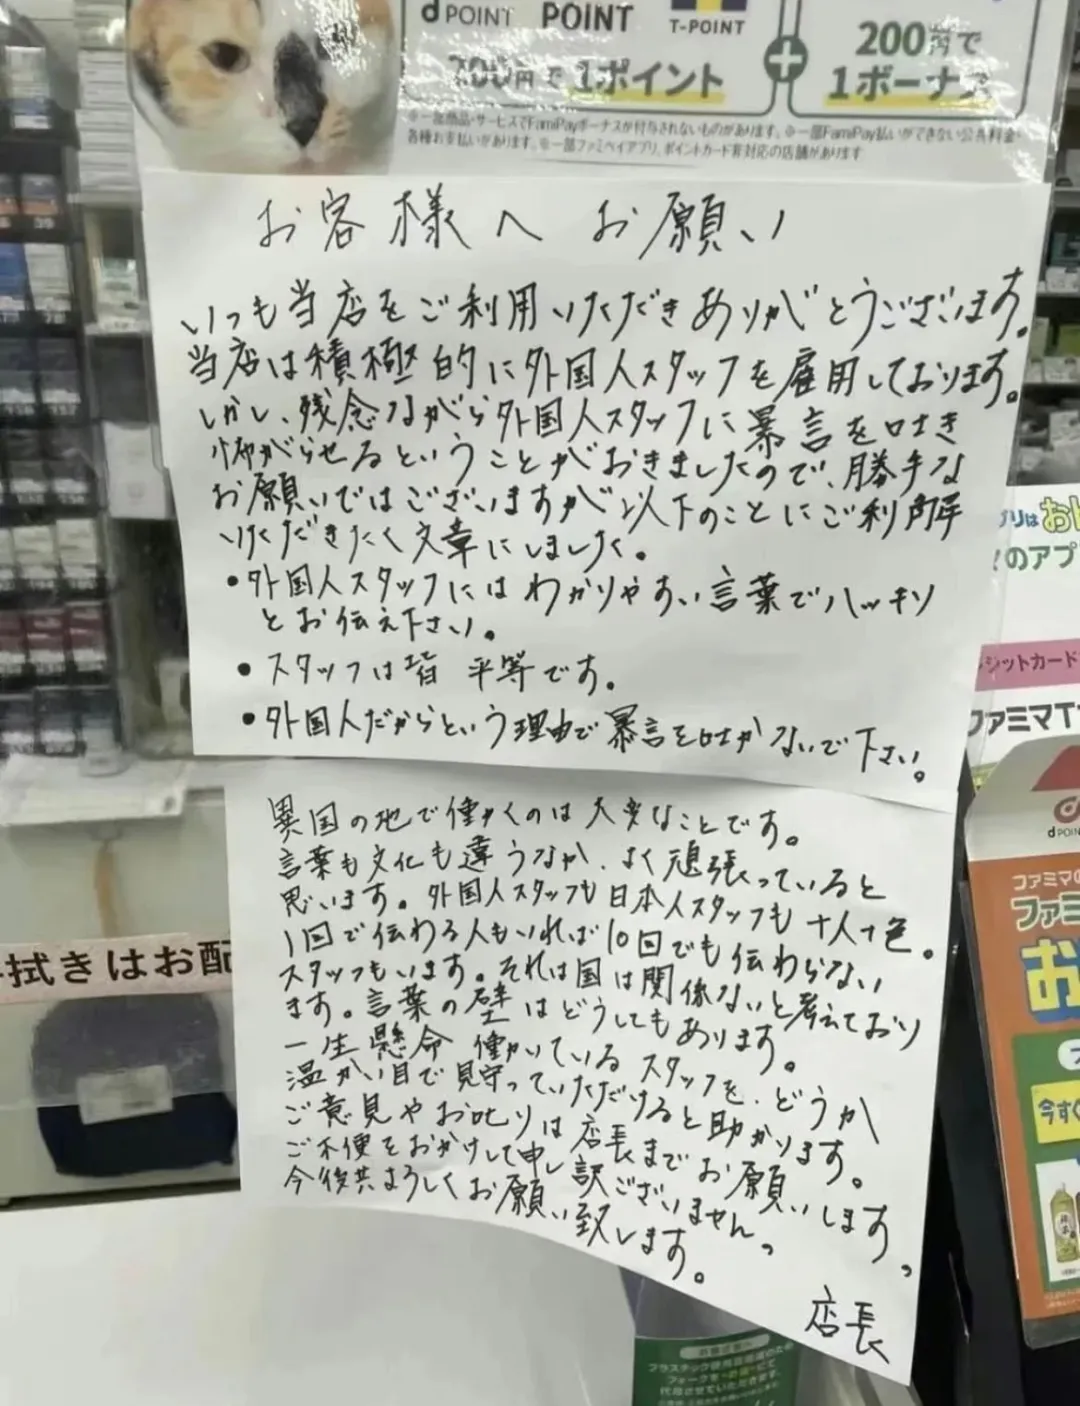 d POINT POINT T-POINT
200円で1ポイント
200円で
1ボーナス
※一部商品・サービスでFamiPayボーナスが付与されないものがあります。※一部FamiPay払いができない公共料金・
各種お支払いがあります。※一部ファミペイアプリ、ポイントカード非対応の店舗があります
お客様へ お願い
いつも当店をご利用いただきありがとうございます。
当店は積極的に外国人スタッフを雇用しております。
しかし、残念ながら外国人スタッフに暴言を吐き
怖がらせるということがおきましたので、勝手な
お願いではございますが以下のことにご利解
いただきたく文章にしました。
・外国人スタッフにはわかりやすい言葉でハッキリ
とお伝え下さい。
・スタッフは皆 平等です。
・外国人だからという理由で暴言を吐かないで下さい。
異国の地で働くのは大変なことです。
言葉も文化も違うなか、よく頑張っていると
思います。外国人スタッフも日本人スタッフも十人十色。
1回で伝わる人もいれば10回でも伝わらない
スタッフもいます。それは国は関係ないと考えており
ます。言葉の壁はどうしてもあります。
一生懸命働いているスタッフを、どうか
温かい目で見守っていただけると助かります。
ご意見やお叱りは店長までお願いします。
ご不便をおかけして申し訳ございません。
今後共よろしくお願い致します。
店長
拭きはお配
のアプ
ジットカード
ファミマT
d POIN
ファミマの
ファミ
お
今すぐ
プラスチック使用
フォークを
代用させていただきます